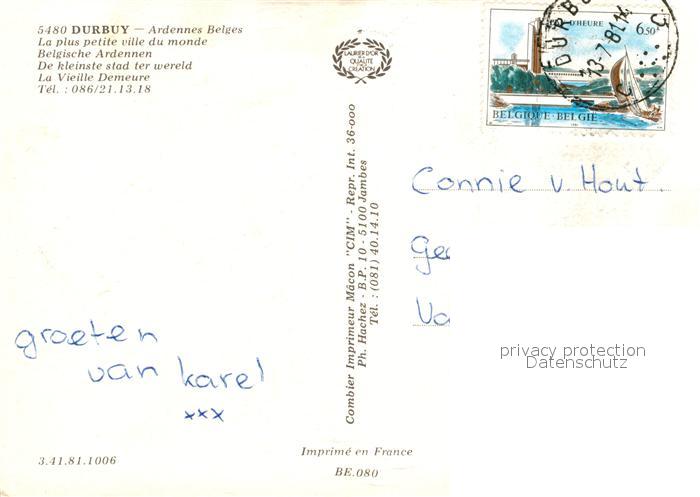 5480 DURBUY — Ardennes Belges
La plus petite ville du monde
Belgische Ardennen
De kleinste stad ter wereld
La Vieille Demeure
Tél. : 086/21.13.18
LAURIER D'OR
DE LA
QUALITÉ
DE LA
CRÉATION
D'HEURE
6,50F
BELGIQUE-BELGIË
DURBUY
13-7-81.14
Combier Imprimeur Mâcon "CIM" - Repr. Int. 36-000
Ph. Hachez - B.P. 10 - 5100 Jambes
Tél. : (081) 40.14.10
Connie v. Hout.
groeten
van karel
xxx
privacy protection
Datenschutz
3.41.81.1006
Imprimé en France
BE.080